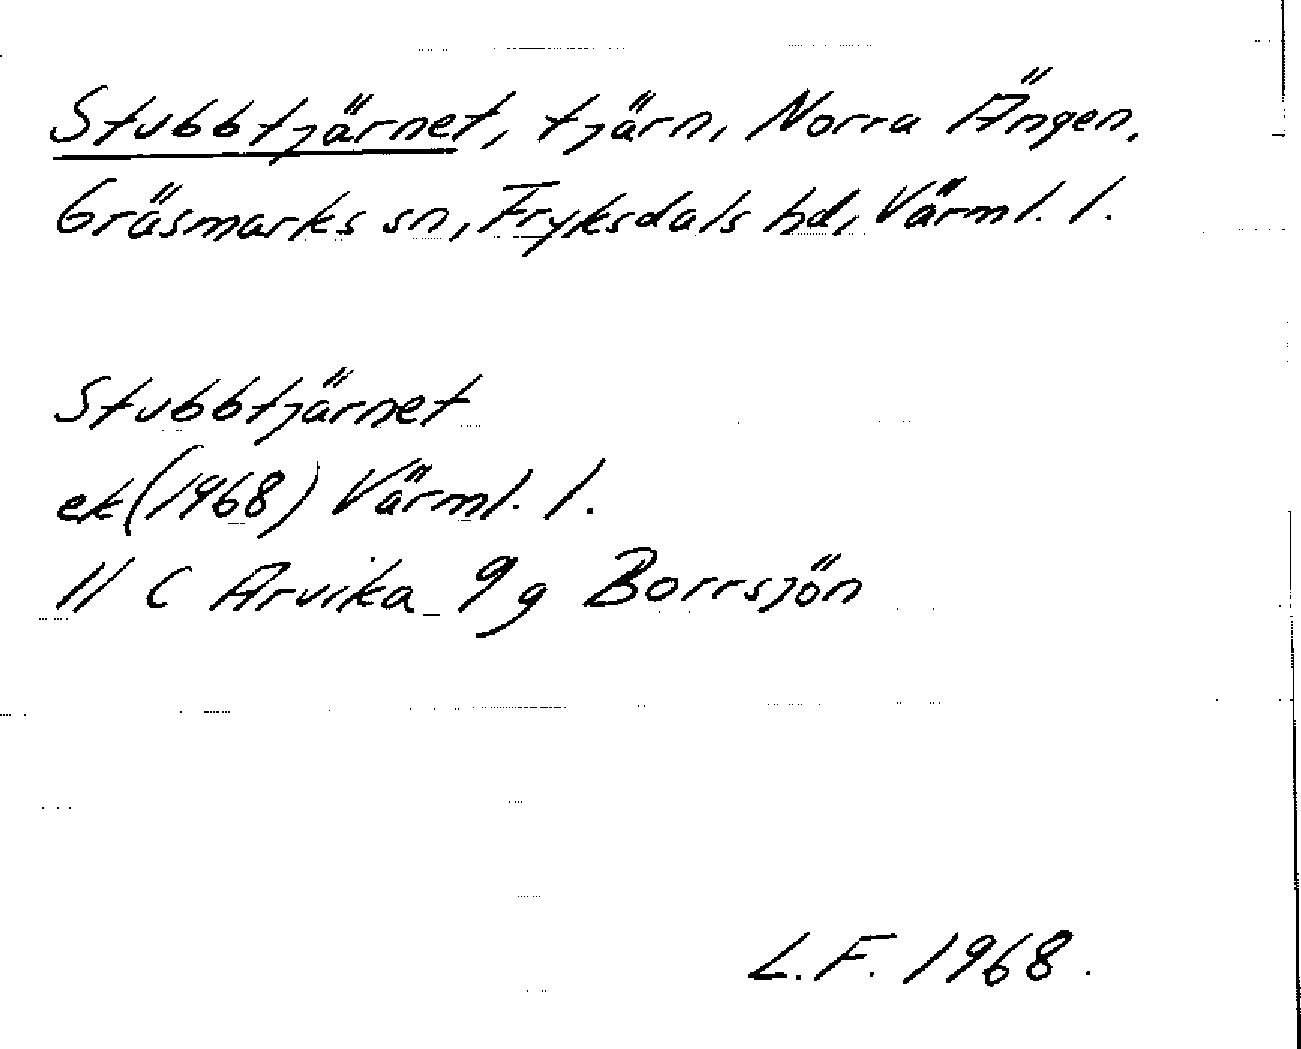 Stubbtjärnet, tjärn, Norra Ängen,
Gräsmarks sn, Fryksdals hd, Värml. l.
Stubbtjärnet
ek (1968) Värml. l.
11 C Arvika 9g Borrsjön
L.F. 1968.